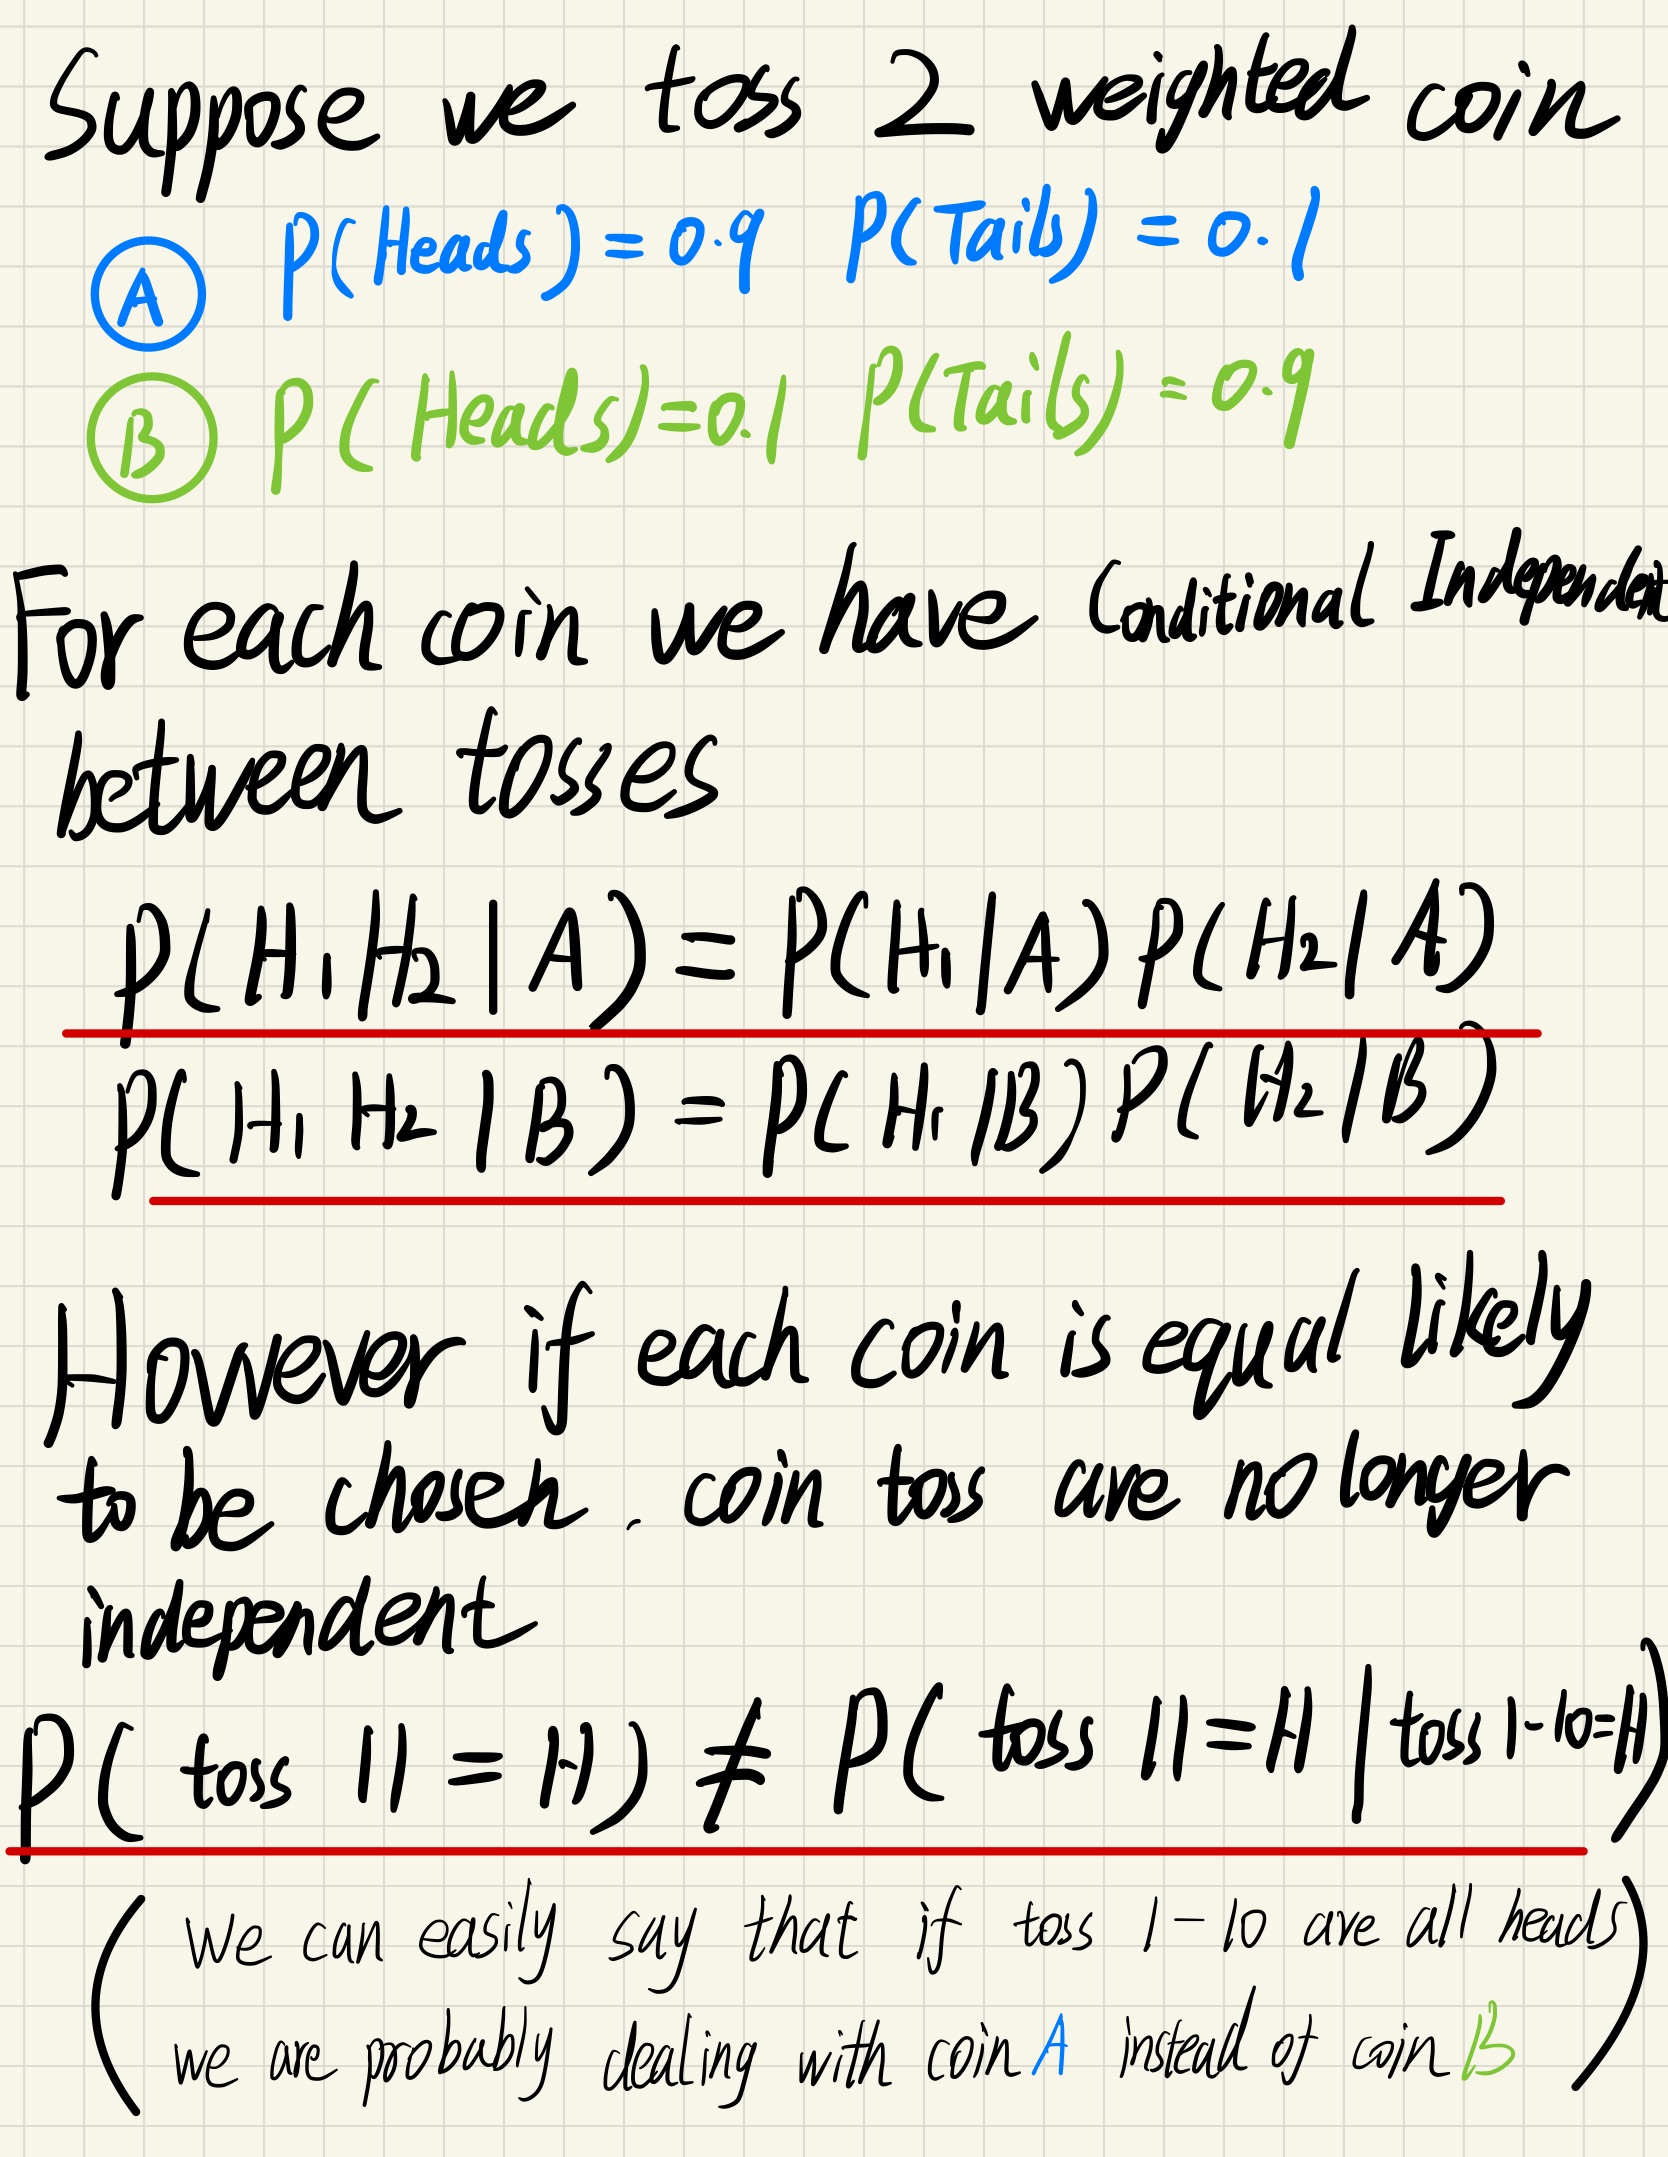 Suppose we toss 2 weighted coin
A P(Heads) = 0.9 P(Tails) = 0.1
B P(Heads)=0.1 P(Tails) = 0.9
For each coin we have Conditional Independent
between tosses
P(H₁ H₂ | A) = P(H₁ | A) P(H₂ | A)
P(H₁ H₂ | B) = P(H₁ | B) P(H₂ | B)
However if each coin is equal likely
to be chosen. coin toss are no longer
independent
P( toss 11 = H) ≠ P( toss 11=H | toss 1-10=H)
(We can easily say that if toss 1-10 are all heads
we are probably dealing with coin A instead of coin B)